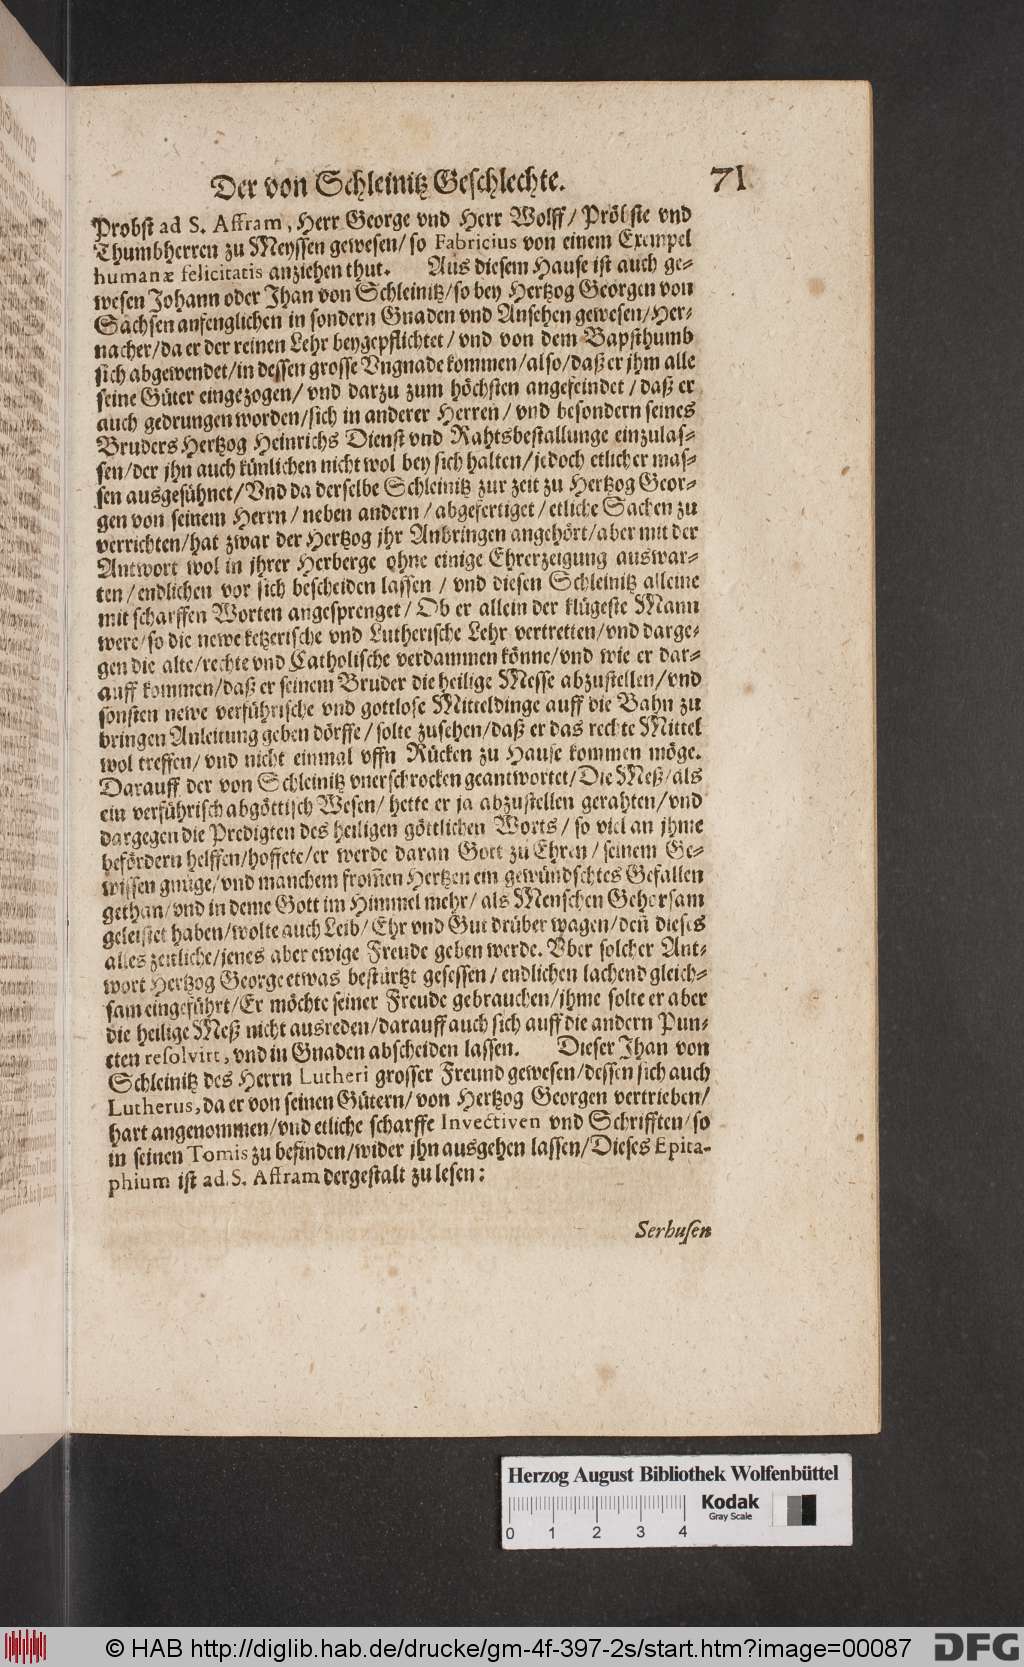 Der von Schleinitz Geschlechte. 71
Probst ad S. Affram, Herr George vnd Herr Wolff/ Pröbste vnd
Thumbherren zu Meyssen gewesen/ so Fabricius von einem Exempel
humanæ felicitatis anziehen thut. Aus diesem Hause ist auch ge-
wesen Johann oder Jhan von Schleinitz/ so bey Hertzog Georgen von
Sachsen anfenglichen in sondern Gnaden vnd Ansehen gewesen/ Her-
nacher/ da er der reinen Lehr beygepflichtet/ vnd von dem Bapsthumb
sich abgewendet/ in dessen grosse Vngnade kommen/ also/ daß er jhm alle
seine Güter eingezogen/ vnd darzu zum höchsten angefeindet/ daß er
auch gedrungen worden/ sich in anderer Herren/ vnd besondern seines
Bruders Hertzog Heinrichs Dienst vnd Rahtsbestallunge einzulas-
sen/ der jhn auch künlichen nicht wol bey sich halten/ jedoch etlicher mas-
sen ausgesühnet/ Vnd da derselbe Schleinitz zur zeit zu Hertzog Geor-
gen von seinem Herrn/ neben andern/ abgefertiget/ etliche Sachen zu
verrichten/ hat zwar der Hertzog jhr Anbringen angehört/ aber mit der
Antwort wol in jhrer Herberge ohne einige Ehrerzeigung auswar-
ten/ endlichen vor sich bescheiden lassen/ vnd diesen Schleinitz alleine
mit scharffen Worten angesprenget/ Ob er allein der klügeste Mann
were/ so die newe ketzerische vnd Lutherische Lehr vertretten/ vnd darge-
gen die alte/ rechte vnd Catholische verdammen könne/ vnd wie er dar-
auff kommen/ daß er seinem Bruder die heilige Messe abzustellen/ vnd
sonsten newe verführische vnd gottlose Mitteldinge auff die Bahn zu
bringen Anleitung geben dörffe/ solte zusehen/ daß er das rechte Mittel
wol treffen/ vnd nicht einmal vffn Rücken zu Hause kommen möge.
Darauff der von Schleinitz vnerschrocken geantwortet/ Die Meß/ als
ein verführisch abgöttisch Wesen/ hette er ja abzustellen gerahten/ vnd
dargegen die Predigten des heiligen göttlichen Worts/ so viel an jhme
befördern helffen/ hoffete/ er werde daran Gott zu Ehren/ seinem Ge-
wissen gnüge/ vnd manchem from̃en Hertzen ein gewündschtes Gefallen
gethan/ vnd in deme Gott im Himmel mehr/ als Menschen Gehorsam
geleistet haben/ wolte auch Leib/ Ehr vnd Gut drüber wagen/ den̄ dieses
alles zeitliche/ jenes aber ewige Freude geben werde. Vber solcher Ant-
wort Hertzog George etwas bestürtzt gesessen/ endlichen lachend gleich-
sam eingeführt/ Er möchte seiner Freude gebrauchen/ jhme solte er aber
die heilige Meß nicht ausreden/ darauff auch sich auff die andern Pun-
cten resolvirt, vnd in Gnaden abscheiden lassen. Dieser Jhan von
Schleinitz des Herrn Lutheri grosser Freund gewesen/ dessen sich auch
Lutherus, da er von seinen Gütern/ von Hertzog Georgen vertrieben/
hart angenommen/ vnd etliche scharffe Invectiven vnd Schrifften/ so
in seinen Tomis zu befinden/ wider jhn ausgehen lassen/ Dieses Epita-
phium ist ad S. Affram dergestalt zu lesen:
Serhusen
Herzog August Bibliothek Wolfenbüttel
0 1 2 3 4
Kodak
Gray Scale
© HAB http://diglib.hab.de/drucke/gm-4f-397-2s/start.htm?image=00087 DFG